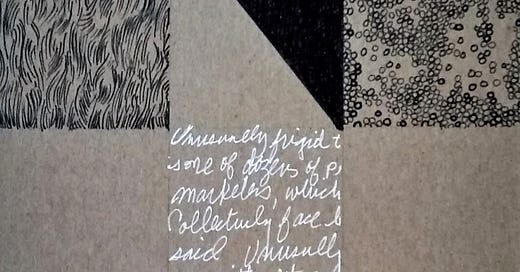 Unusually frigid t
is one of dozens of p
marketers, which
Collectively face b
said Unusually